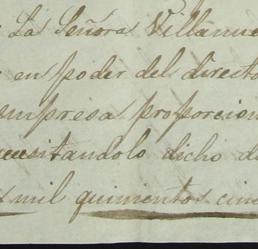 La Señora Villanue
en poder del directo
empresa proporcion
necesitandolo dicho d
mil quinientos cin